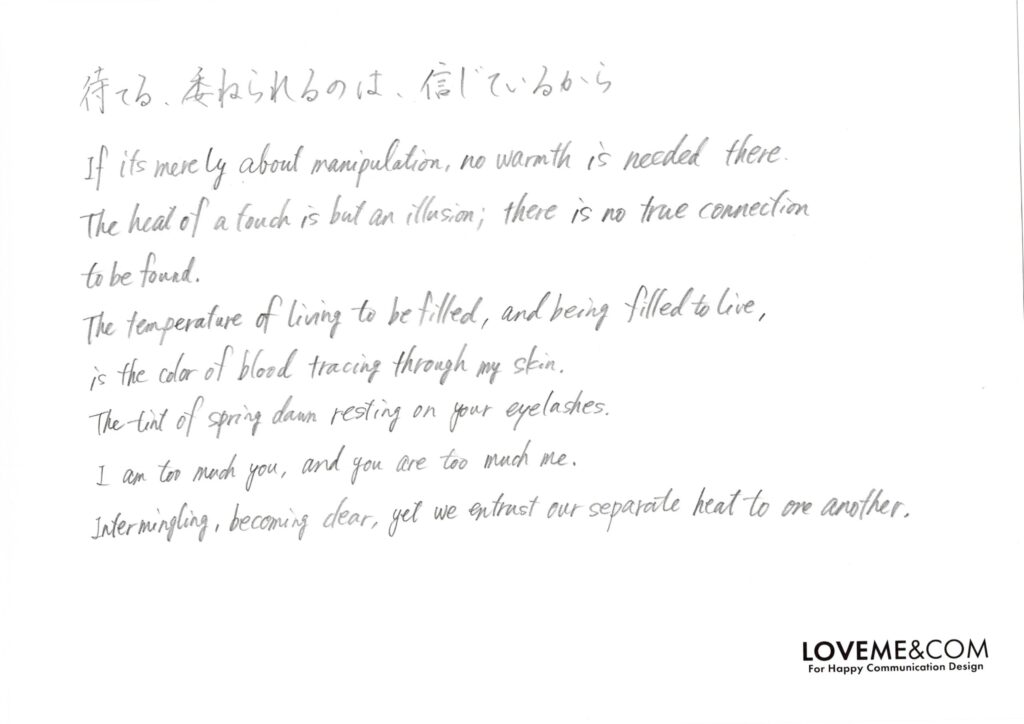 待てる、委ねられるのは、信じているから
If its merely about manipulation, no warmth is needed there.
The heat of a touch is but an illusion; there is no true connection
to be found.
The temperature of living to be filled, and being filled to live,
is the color of blood tracing through my skin.
The tint of spring dawn resting on your eyelashes.
I am too much you, and you are too much me.
Intermingling, becoming clear, yet we entrust our separate heat to one another.
LOVEME&COM
For Happy Communication Design